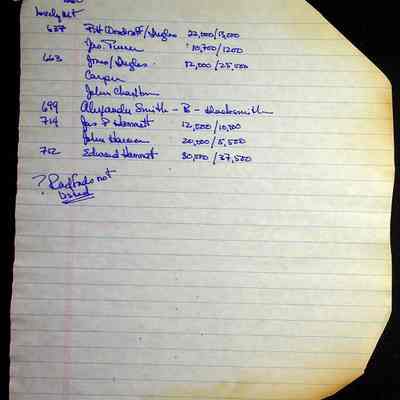 Lovely Mt
637 B.H. /Ingles 22,000/
Jno. Turner 10,700/1200
663 Jones/Ingles. 12,000/25,500
Carper
John Charlton
699 Alexander Smith - B - blacksmith
714 Jas P Hammet 12,500/10,000
John 20,000/5,500
712 Edward Hammet 30,000/37,500
? Radfords not
listed